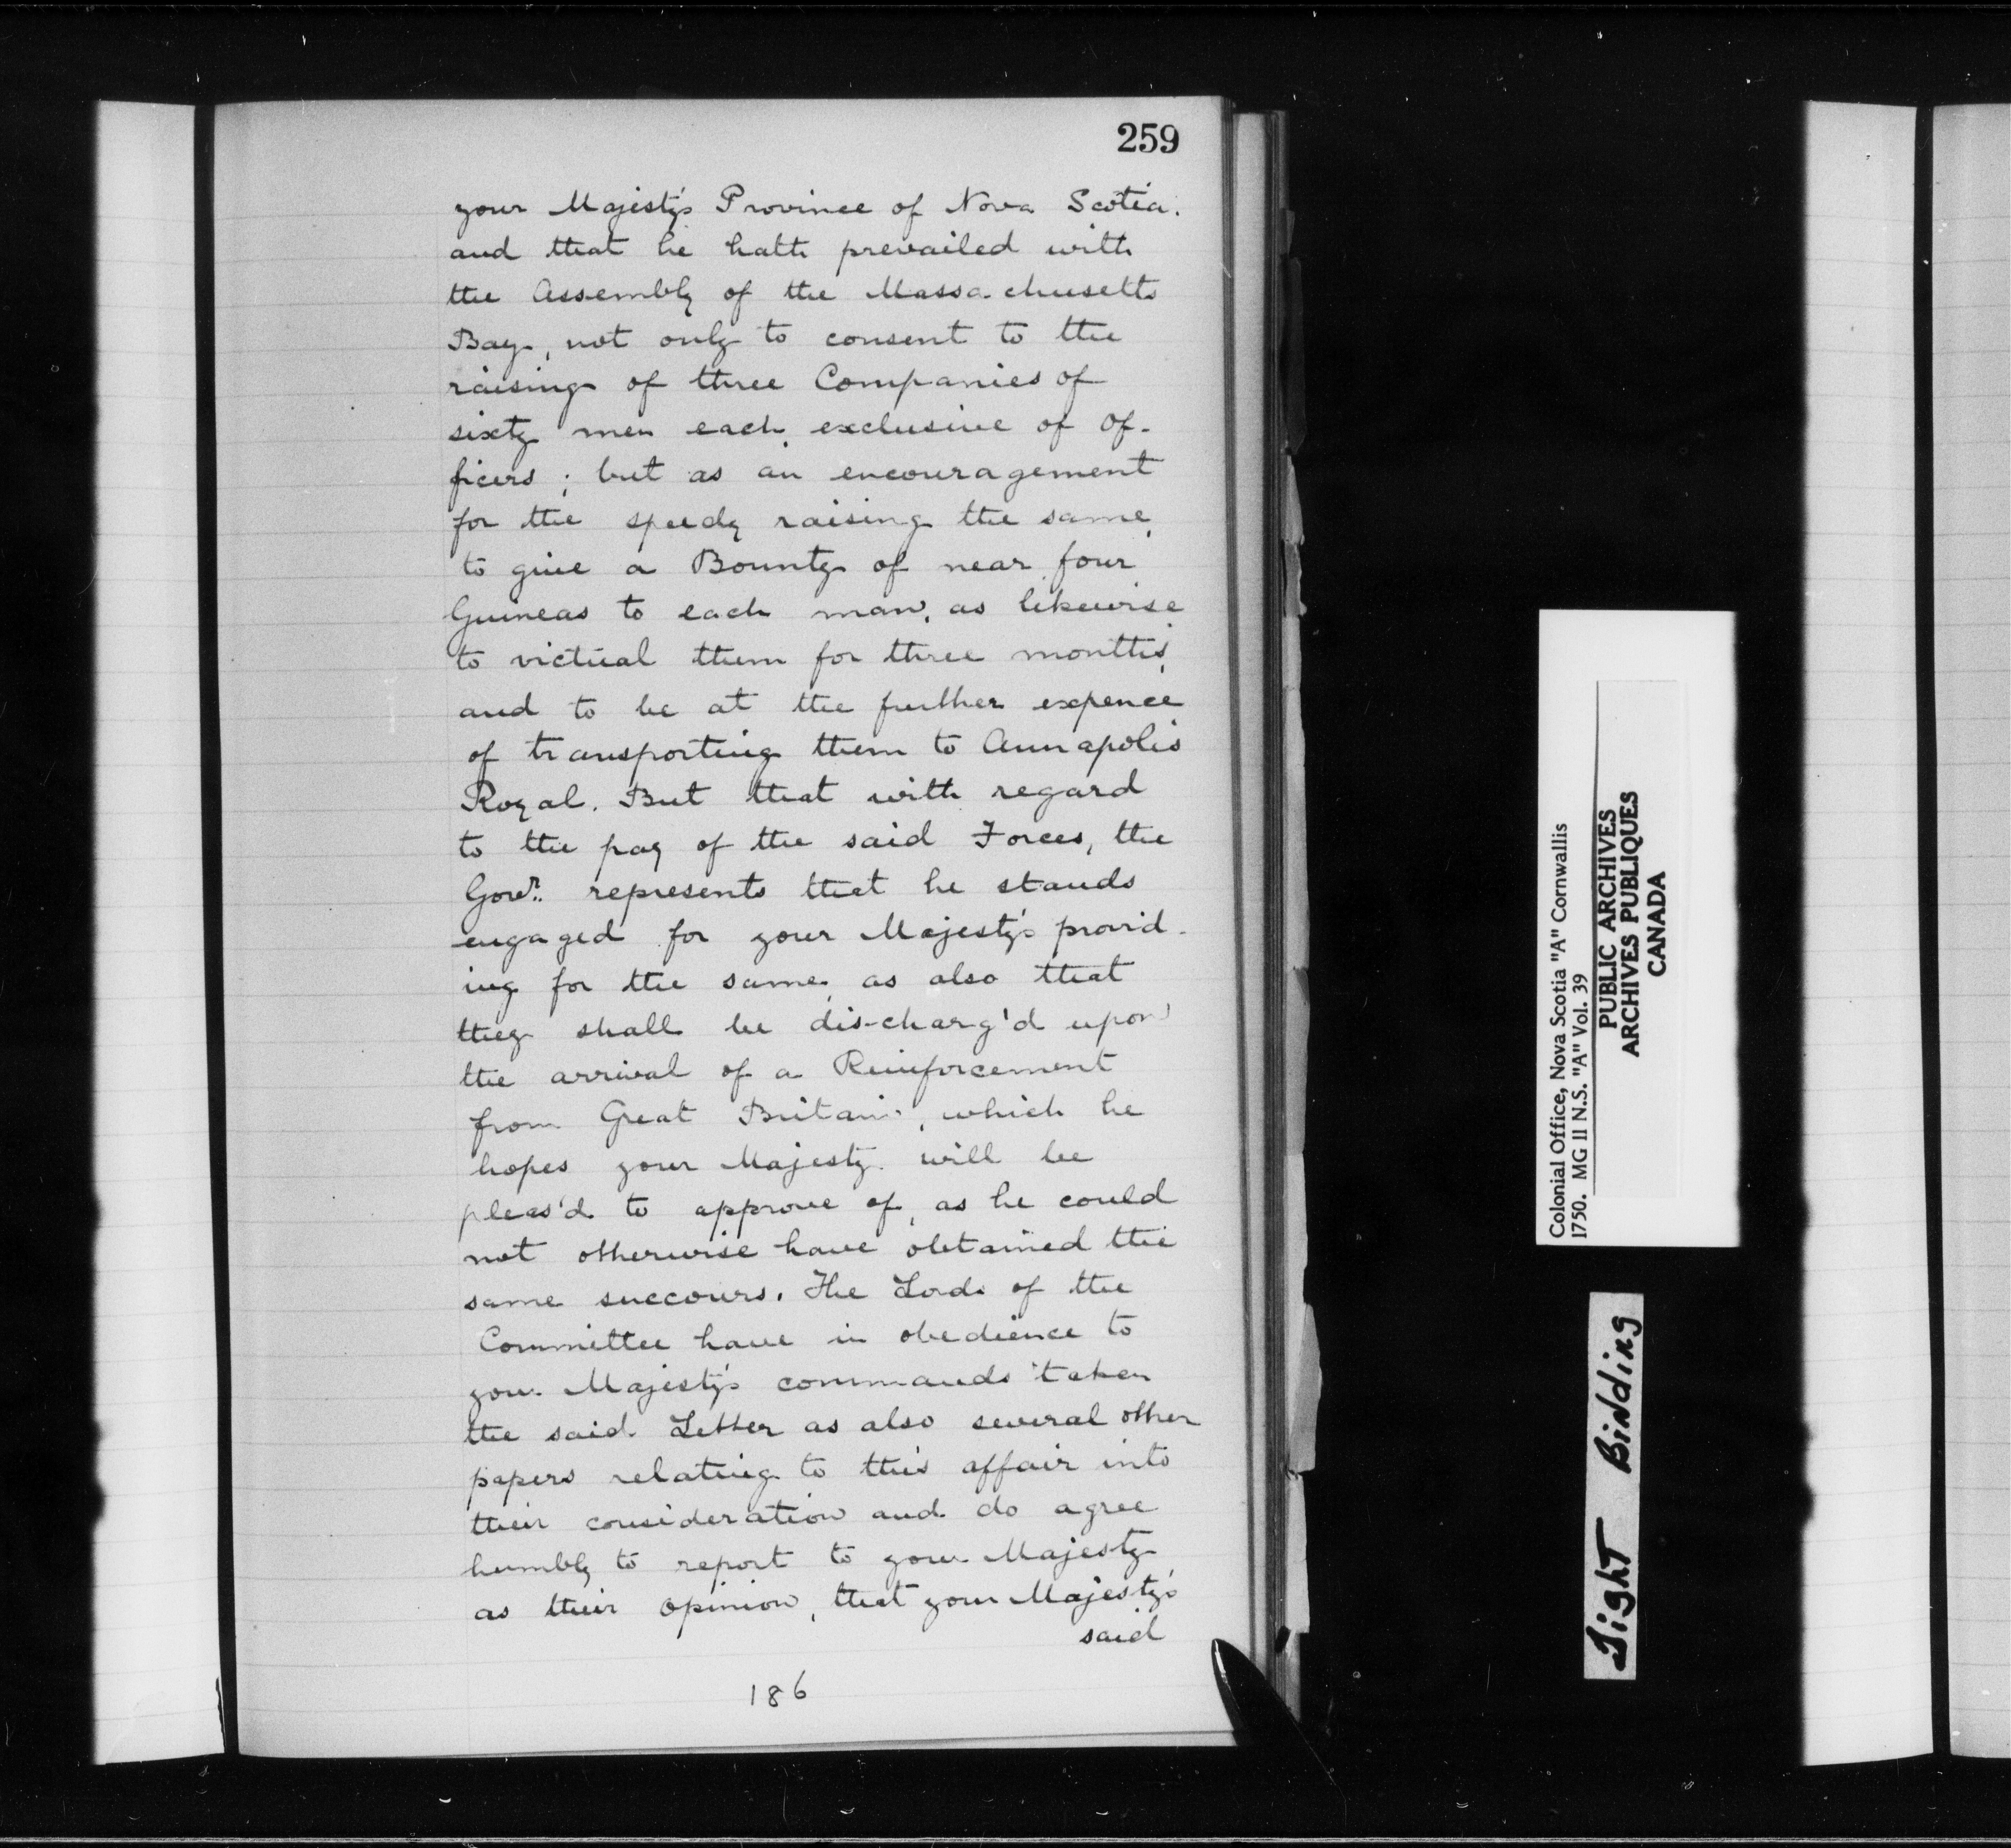 259
your Majesty's Province of Nova Scotia.
and that he hath prevailed with
the Assembly of the Massachusetts
Bay, not only to consent to the
raising of three Companies of
sixty men each exclusive of Of-
ficers; but as an encouragement
for the speedy raising the same,
to give a Bounty of near four
Guineas to each man, as likewise
to victual them for three months,
and to be at the further expence
of transporting them to Annapolis
Royal. But that with regard
to the pay of the said Forces, the
Govr. represents that he stands
engaged for your Majesty's provid-
ing for the same, as also that
they shall be dis-charg'd upon
the arrival of a Reinforcement
from Great Britain, which he
hopes your Majesty will be
pleas'd to approve of, as he could
not otherwise have obtained the
same succours. The Lords of the
Committee have in obedience to
your Majesty's commands taken
the said Letter as also several other
papers relating to this affair into
their consideration and do agree
humbly to report to your Majesty
as their opinion, that your Majesty's
said
186
Colonial Office, Nova Scotia "A" Cornwallis
1750. MG II N.S. "A" Vol. 39
PUBLIC ARCHIVES
ARCHIVES PUBLIQUES
CANADA
Tight Binding